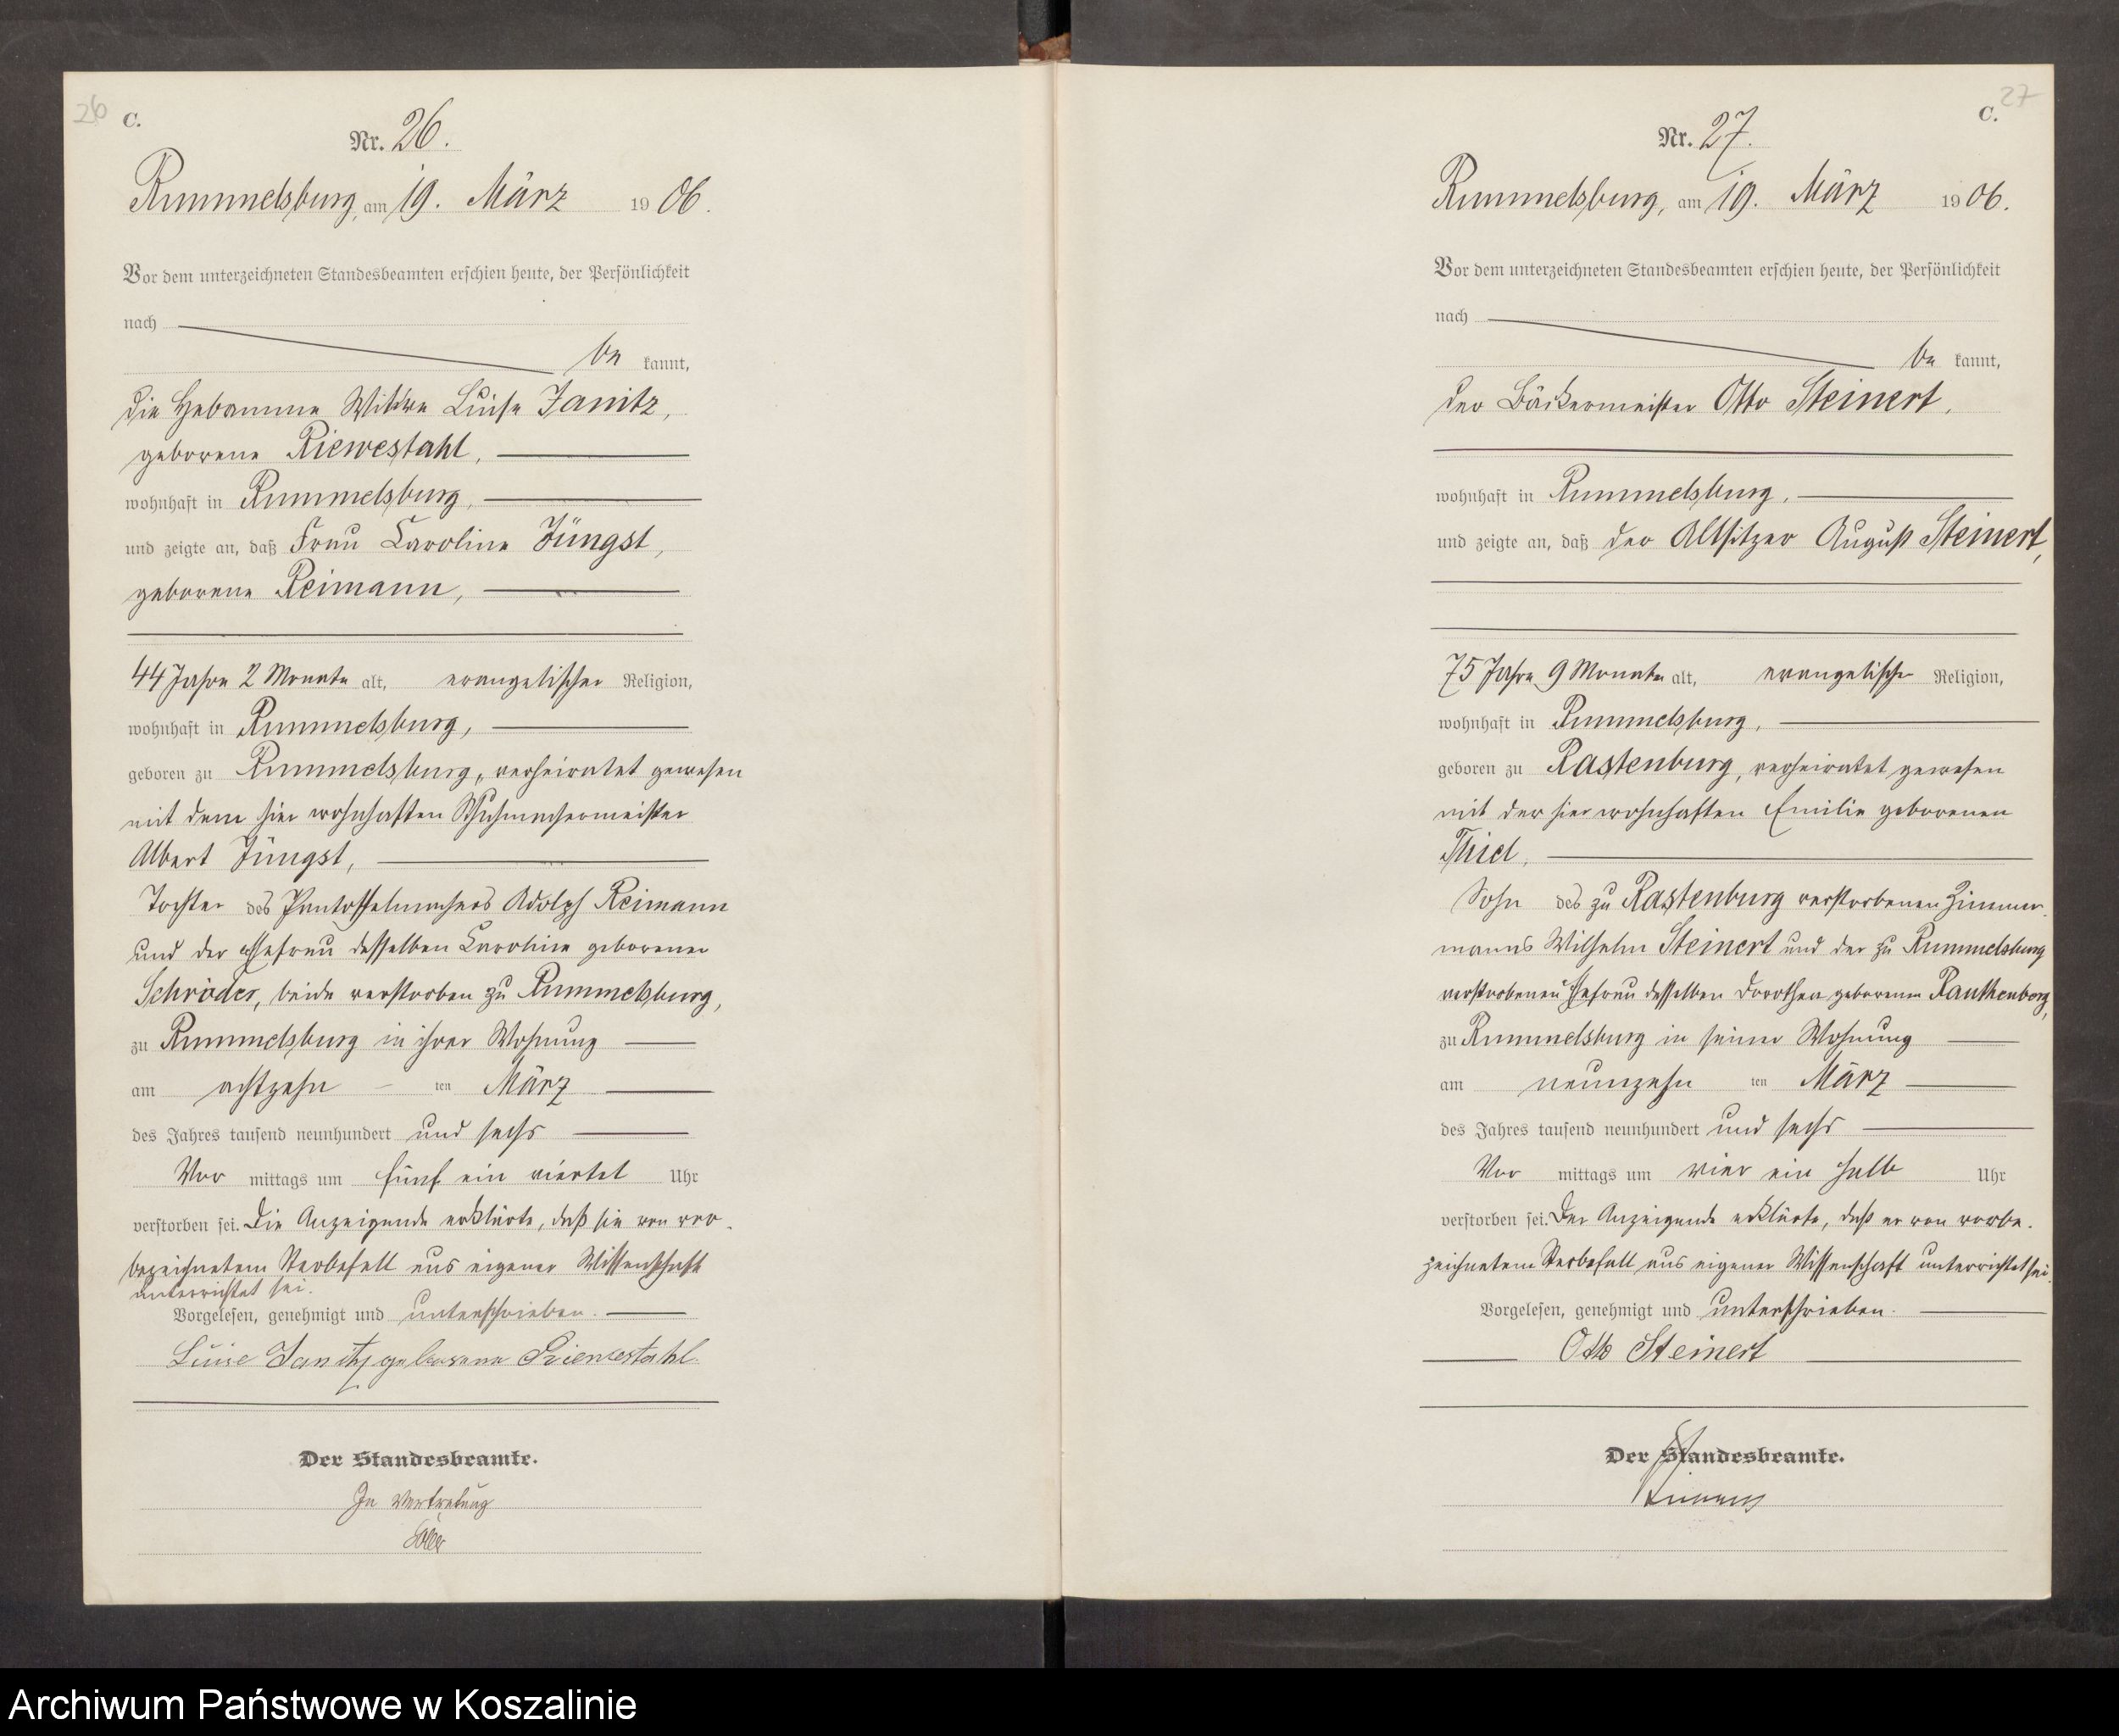 26
C.
Nr. 26.
Rummelsburg, am 19. März 1906.
Vor dem unterzeichneten Standesbeamten erschien heute, der Persönlichkeit
nach
be kannt,
die Hebamme Witwe Luise Janitz,
geborene Riewestahl,
wohnhaft in Rummelsburg,
und zeigte an, daß Frau Caroline Jüngst,
geborene Reimann,
44 Jahre 2 Monate alt, evangelischer Religion,
wohnhaft in Rummelsburg,
geboren zu Rummelsburg, verheiratet gewesen
mit dem hier wohnhaften Schuhmachermeister
Albert Jüngst,
Tochter des Pantoffelmachers Adolph Reimann
und der Ehefrau desselben Caroline geborenen
Schröder, beide verstorben zu Rummelsburg,
zu Rummelsburg in ihrer Wohnung
am achtzehn ten März
des Jahres tausend neunhundert und sechs
Vor mittags um fünf ein viertel Uhr
verstorben sei. Die Anzeigende erklärte, daß sie von vor-
bezeichnetem Sterbefall aus eigener Wissenschaft
unterrichtet sei.
Vorgelesen, genehmigt und unterschrieben.
Luise Janitz geborene Riewestahl.
Der Standesbeamte.
In Vertretung
27
C.
Nr. 27.
Rummelsburg, am 19. März 1906.
Vor dem unterzeichneten Standesbeamten erschien heute, der Persönlichkeit
nach
be kannt,
der Bäckermeister Otto Steinert,
wohnhaft in Rummelsburg,
und zeigte an, daß der Altsitzer August Steinert,
75 Jahre 9 Monate alt, evangelischer Religion,
wohnhaft in Rummelsburg,
geboren zu Rastenburg, verheiratet gewesen
mit der hier wohnhaften Emilie geborenen
Thiel,
Sohn des zu Rastenburg verstorbenen Zimmer-
manns Wilhelm Steinert und der zu Rummelsburg
verstorbenen Ehefrau desselben Dorothea geborenen Rauthenberg,
zu Rummelsburg in seiner Wohnung
am neunzehn ten März
des Jahres tausend neunhundert und sechs
Vor mittags um vier ein halb Uhr
verstorben sei. Der Anzeigende erklärte, daß er von vorbe-
zeichnetem Sterbefall aus eigener Wissenschaft unterrichtet sei.
Vorgelesen, genehmigt und unterschrieben.
Otto Steinert
Der Standesbeamte.
Archiwum Państwowe w Koszalinie